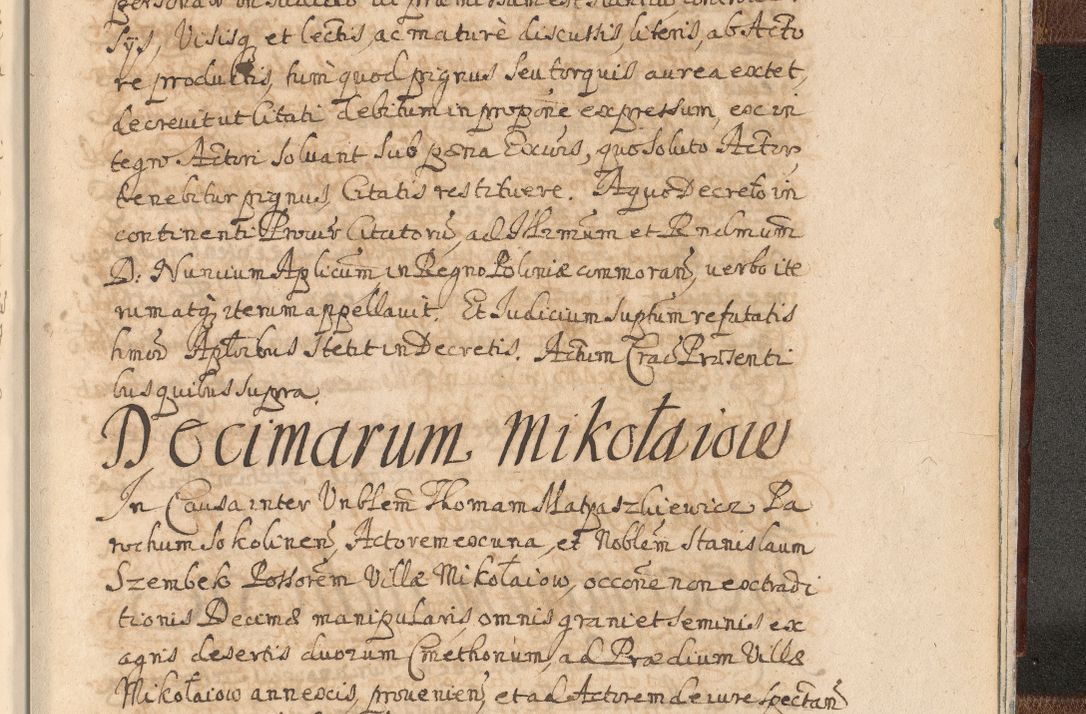 sijs, Visisq et lectis, ac maturè discussis, literis, ab Acto
re productis, tum quod pignus seu torquis aurea extet,
decrevit ut Citati debitum in propõne expressum, ex in
tegro Actori solvant sub pæna Excõis, quo soluto Actor,
tenebitur pignus, Citatis restituere. A quo Decreto in
continenti Citatorũ, ad Illrmum et Rndmum
D: Nuncium Aplicum in Regno Poloniæ commoran, verbo ite
rum atq iterum appellavit. Et Judicium suptum refutatis
hmoi Aplõibus stetit in Decretis. Actum Crac Præsenti
bus quibus supra.
Decimarum Mikołaiow
In Causa inter Vnblem Thomam Matyaszkiewicz Pa
rochum Sokolinen, Actorem ex una, et Noblem Stanislaum
Szembek Possorem Villæ Mikołaiow, occõne non extradi
tionis Decimæ manipularis, omnis grani et seminis ex
agris desertis duorum Cmethonum, ad Prædium Villæ
Mikołaiow annexis, provenien, et ad Actorem de iure spectan